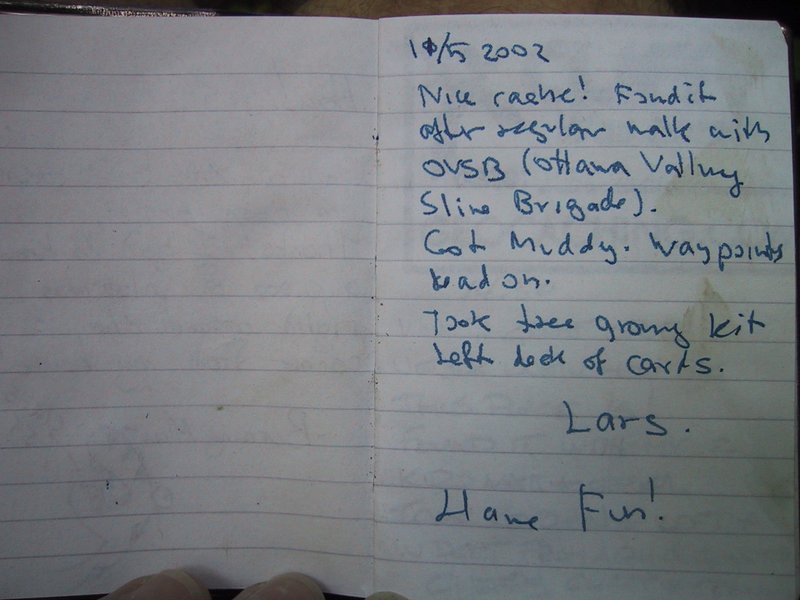 10/5 2002
Nice cache! Foundit
after regular walk with
OVSB (Ottawa Valley
Slime Brigade).
Got Muddy. Waypoints
dead on.
Took tree growing kit
Left deck of cards.
Lars.
Have Fun!